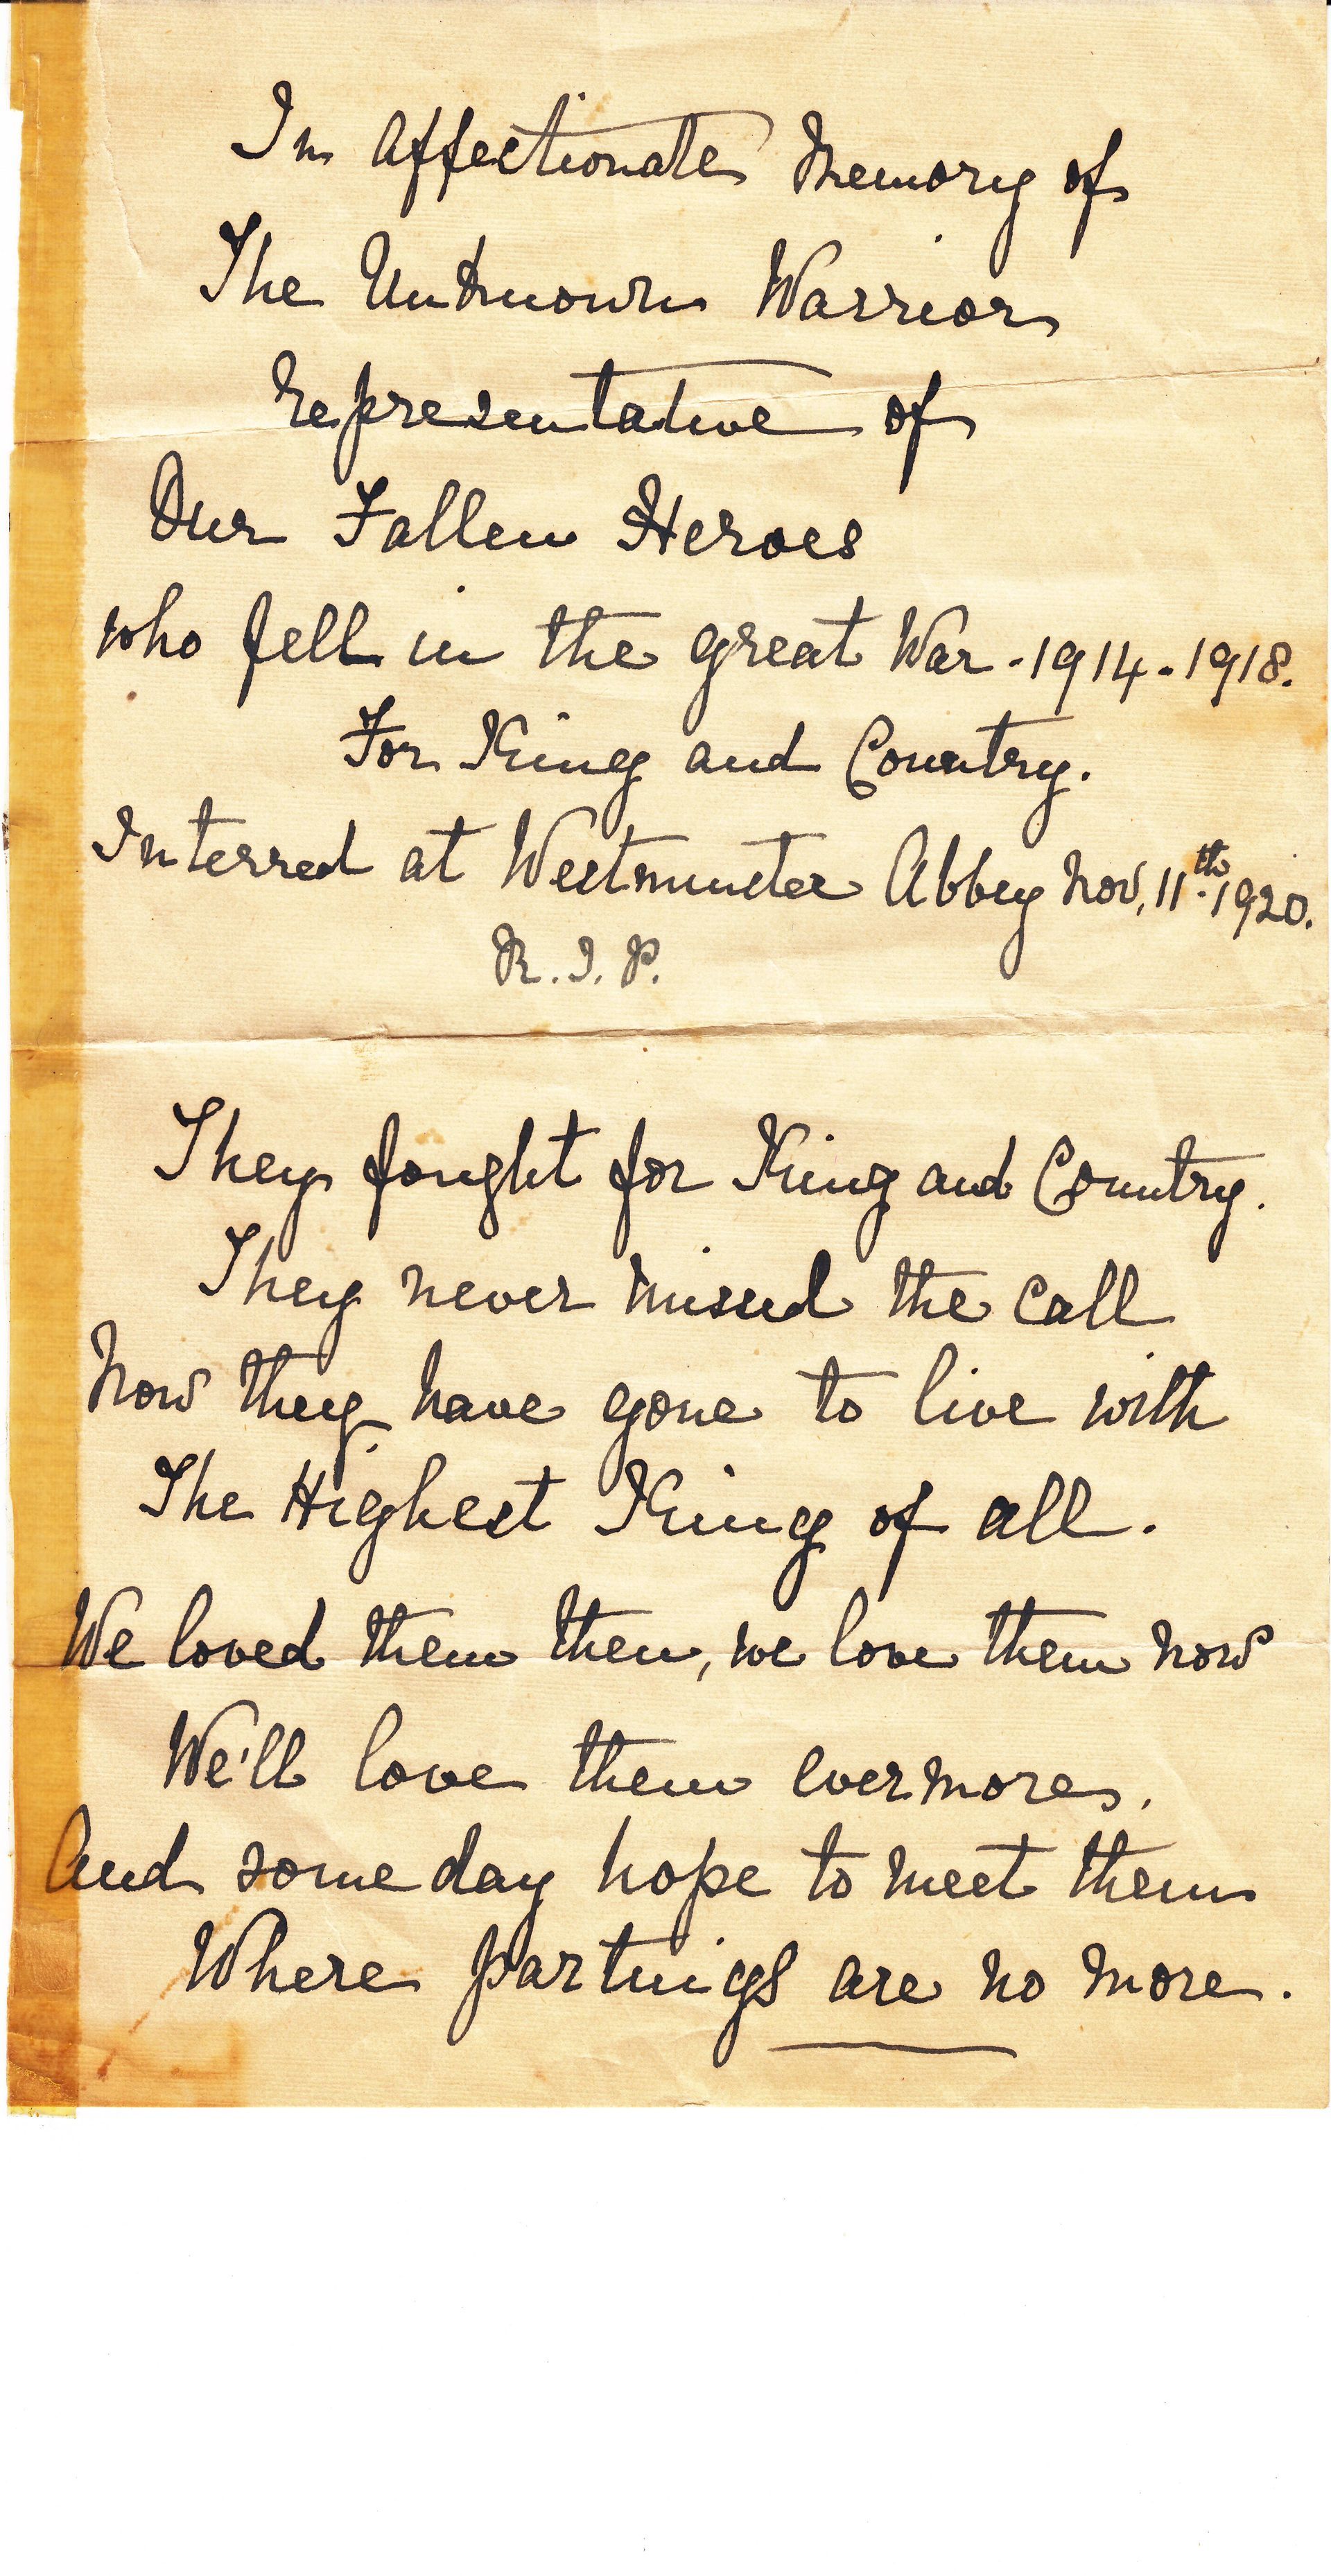 In Affectionate Memory of
The Unknown Warrior
Representative of
Our Fallen Heroes
who fell in the great War. 1914. 1918.
For King and Country.
Interred at Westminster Abbey Nov. 11th. 1920.
R. I. P.
They fought for King and Country.
They never missed the call
Now they have gone to live with
The Highest King of all.
We loved them then, we love them now
We'll love them evermore.
And some day hope to meet them
Where partings are no more.